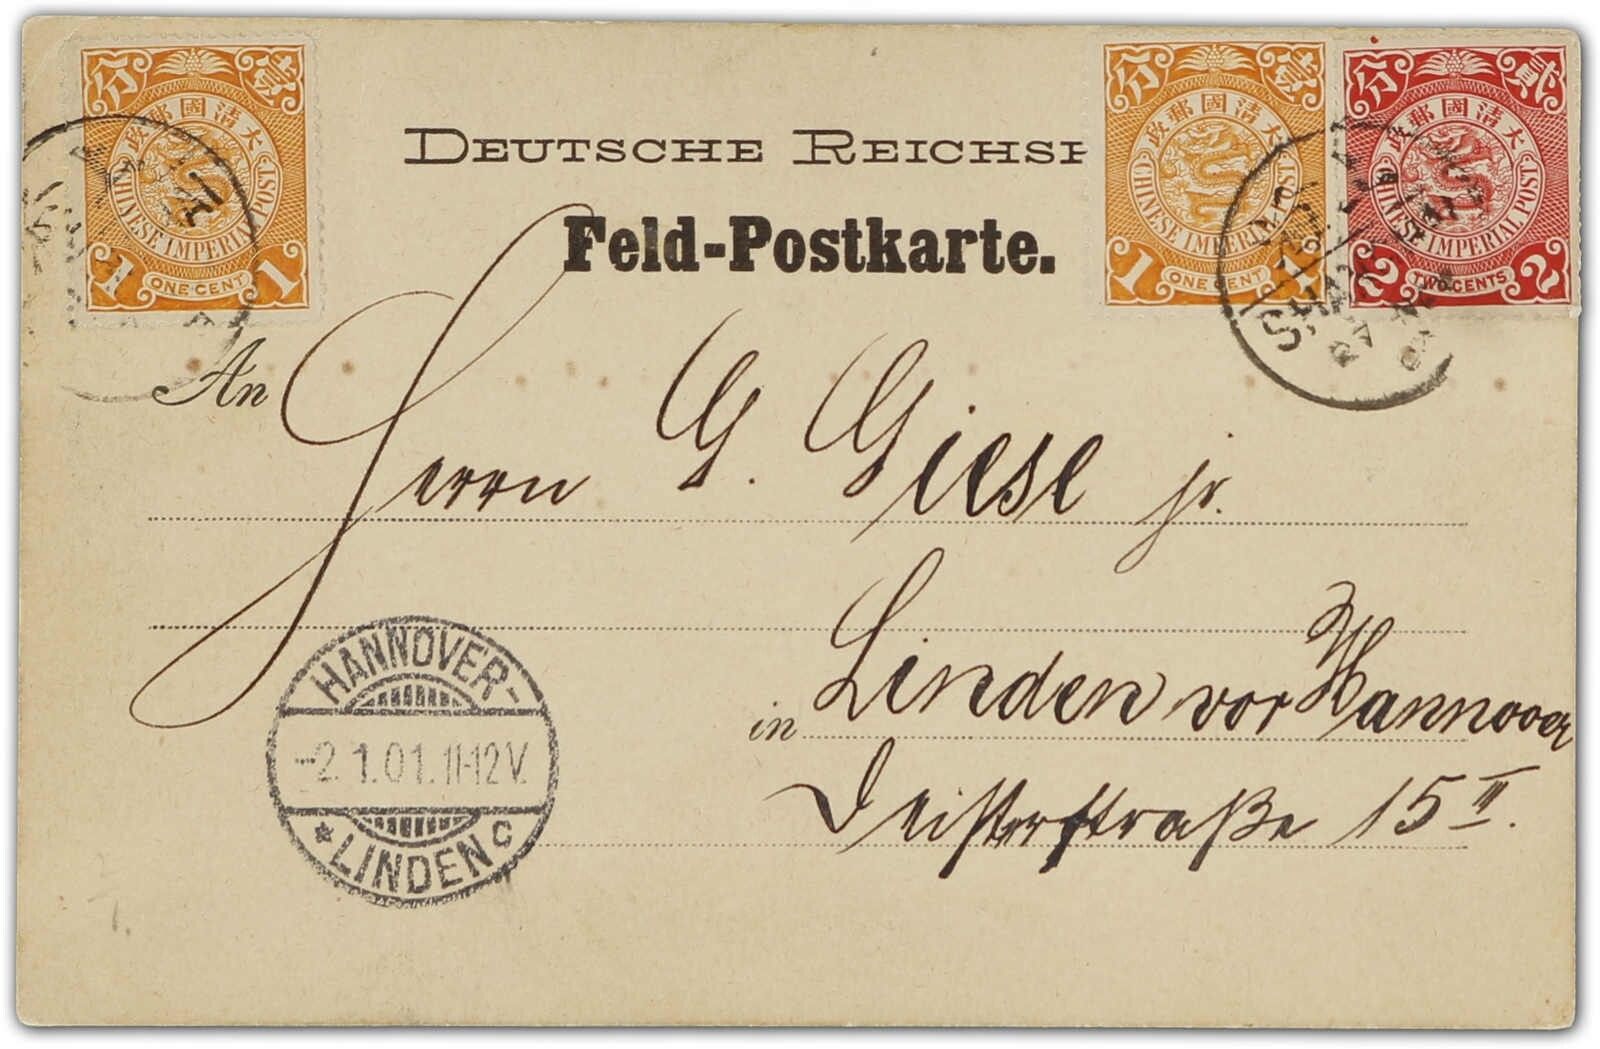 分 壹
大清國郵政
CHINESE IMPERIAL POST
1 ONE CENT 1
分 壹
大清國郵政
CHINESE IMPERIAL POST
1 ONE CENT
分 貳
大清國郵政
CHINESE IMPERIAL POST
2 TWO CENTS 2
DEUTSCHE REICHSP
Feld-Postkarte.
An
Herrn G. Giese jr.
in Linden vor Hannover
Deisterstraße 15 II.
HANNOVER-
-2.1.01.11-12V.
* LINDEN c